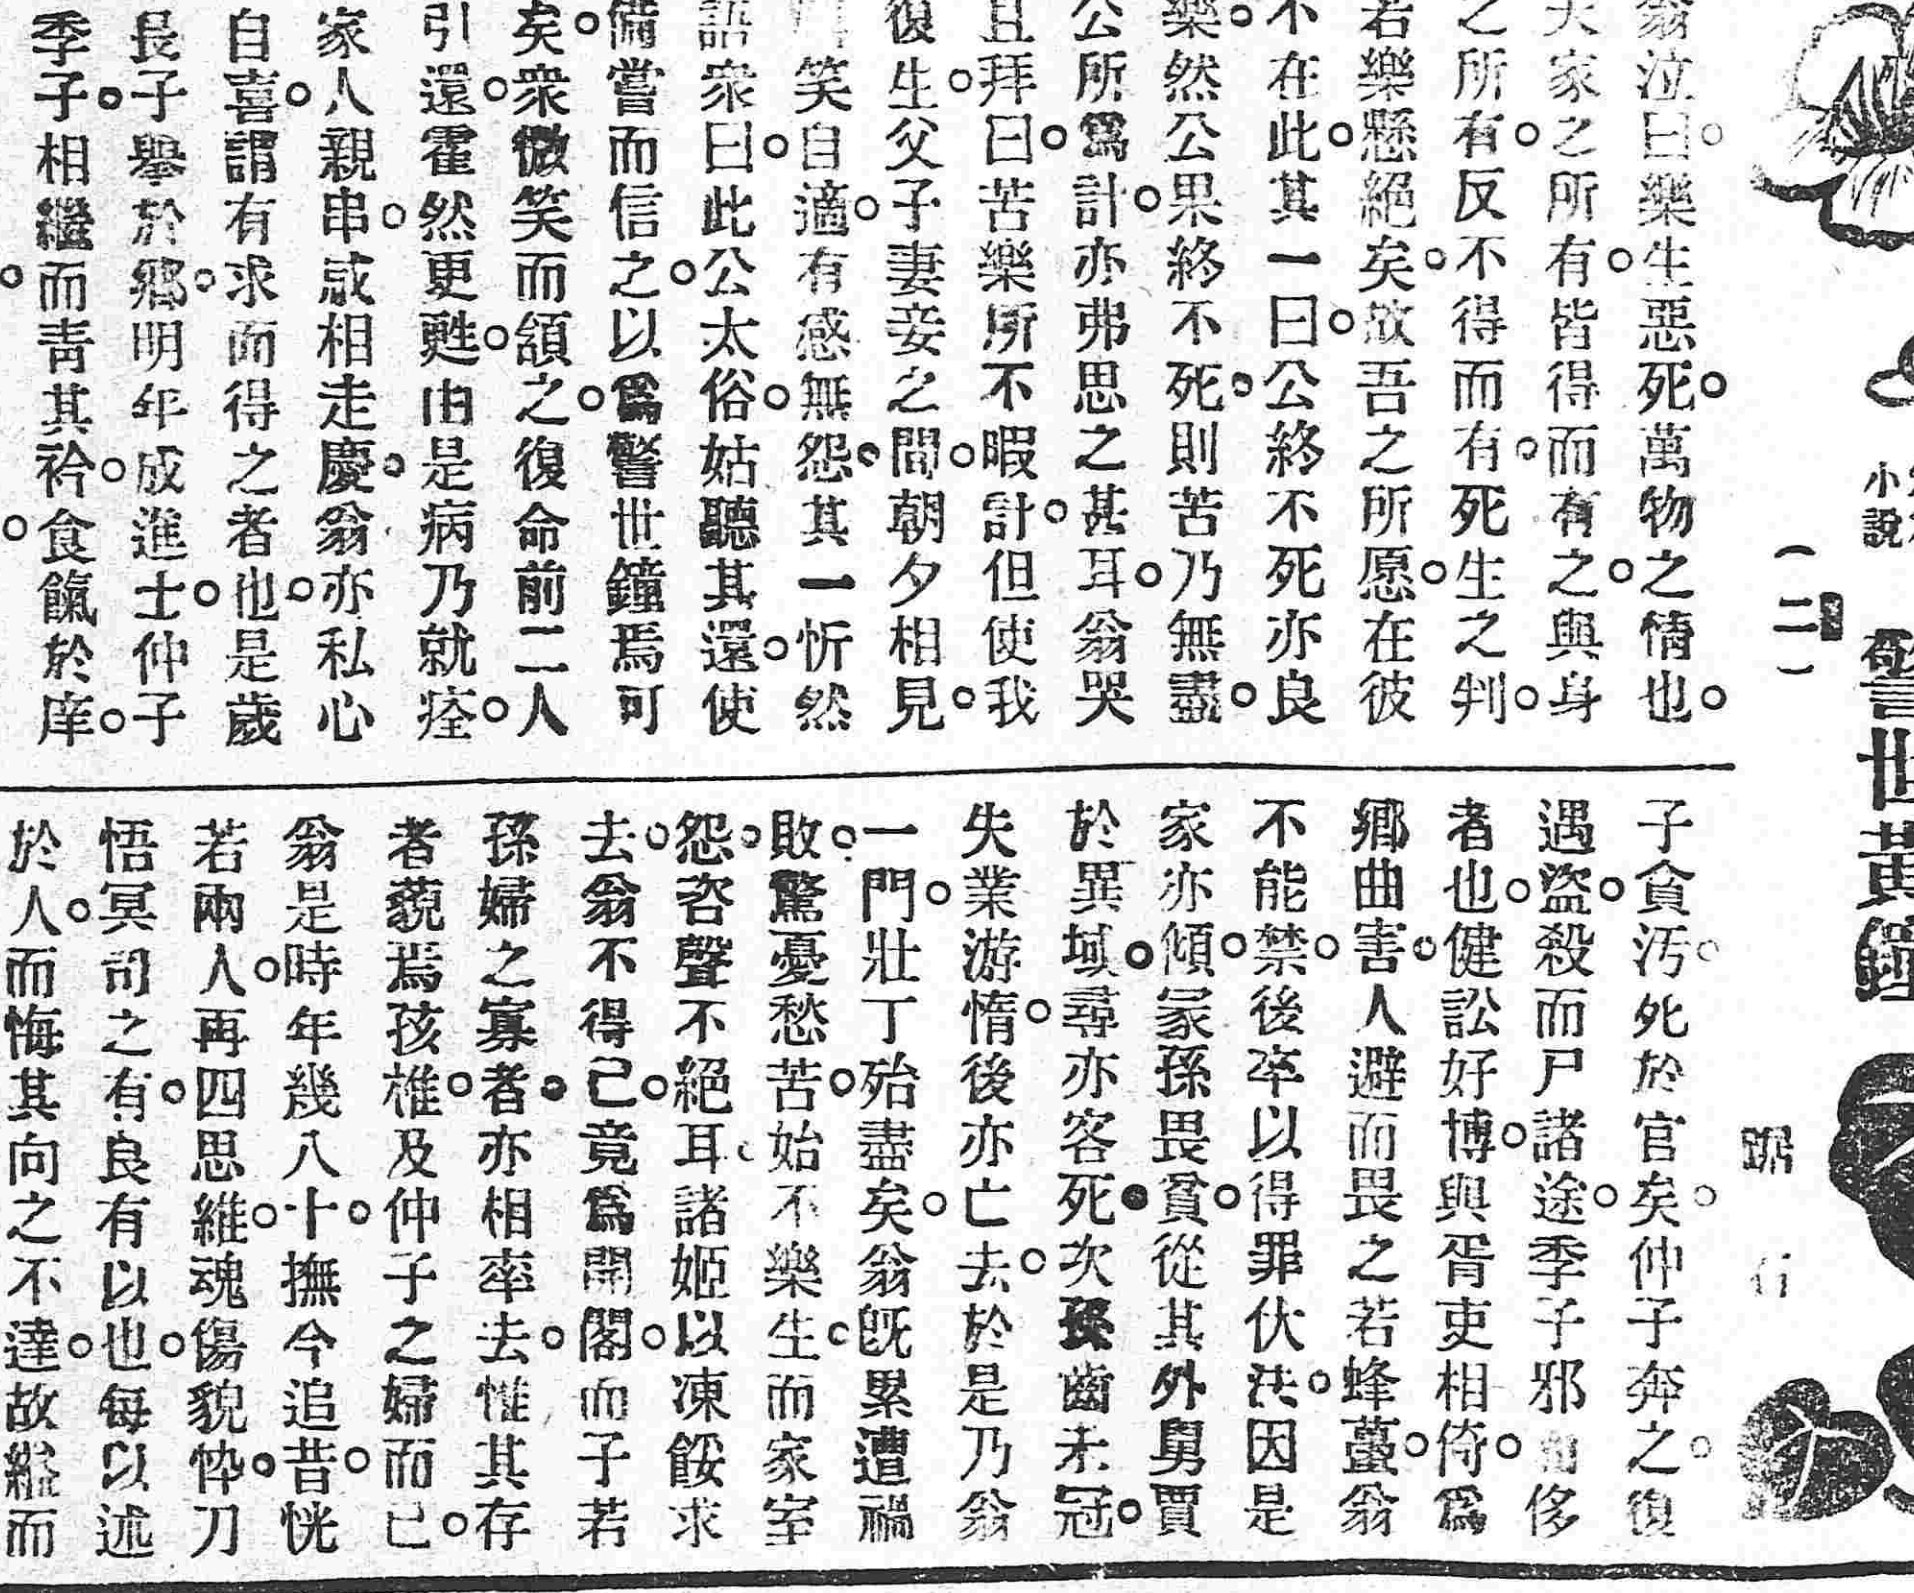 小說
警世黃鐘
(二)
翁泣曰。樂生惡死。萬物之情也。
大家之所有。皆得而有之。與身
之所有。反不得而有。死生之判。
若樂懸絕矣。故吾之所愿。在彼
不在此。其一曰。公終不死亦良
樂。然公果終不死。則苦乃無盡。
公所爲計。亦弗思之甚耳。翁哭
且拜曰。苦樂所不暇計。但使我
復生。父子妻妾之間。朝夕相見。
笑自適。有感無怨。其一忻然
語衆曰。此公太俗。姑聽其還。使
備嘗而信之。以爲警世鐘焉可
矣。衆微笑而頷之。復命前二人
引還。霍然更甦。由是病乃就痊。
家人親串。咸相走慶。翁亦私心
自喜。謂有求而得之者也。是歲
長子舉於鄉。明年成進士。仲子
季子。相繼而靑其衿。食餼於庠。
子貪汚。死於官矣。仲子奔之。復
遇盜。殺而尸諸途。季子邪侈
者也。健訟好博。與胥吏相倚。爲
鄉曲害。人避而畏之若蜂蠆。翁
不能禁。後卒以得罪伏法。因是
家亦傾。冢孫畏貧。從其外舅賈
於異域。尋亦客死。次孫齒未冠。
失業游惰。後亦亡去。於是乃翁
一門。壯丁殆盡矣。翁旣累遭禍
敗。驚憂愁苦。始不樂生。而家室
怨。咨聲不絕耳。諸姬以凍餒求
去。翁不得已。竟爲開閣。而子若
孫婦之寡者。亦相率去。惟其存
者藐焉孩椎。及仲子之婦而已。
翁是時年幾八十。撫今追昔。恍
若兩人。再四思維。魂傷貌悴。刀
悟冥司之有。良有以也。每以述
於人。而悔其向之不達。故縱而